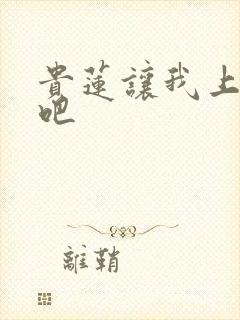 貴蓮讓我上
吧
離鞘